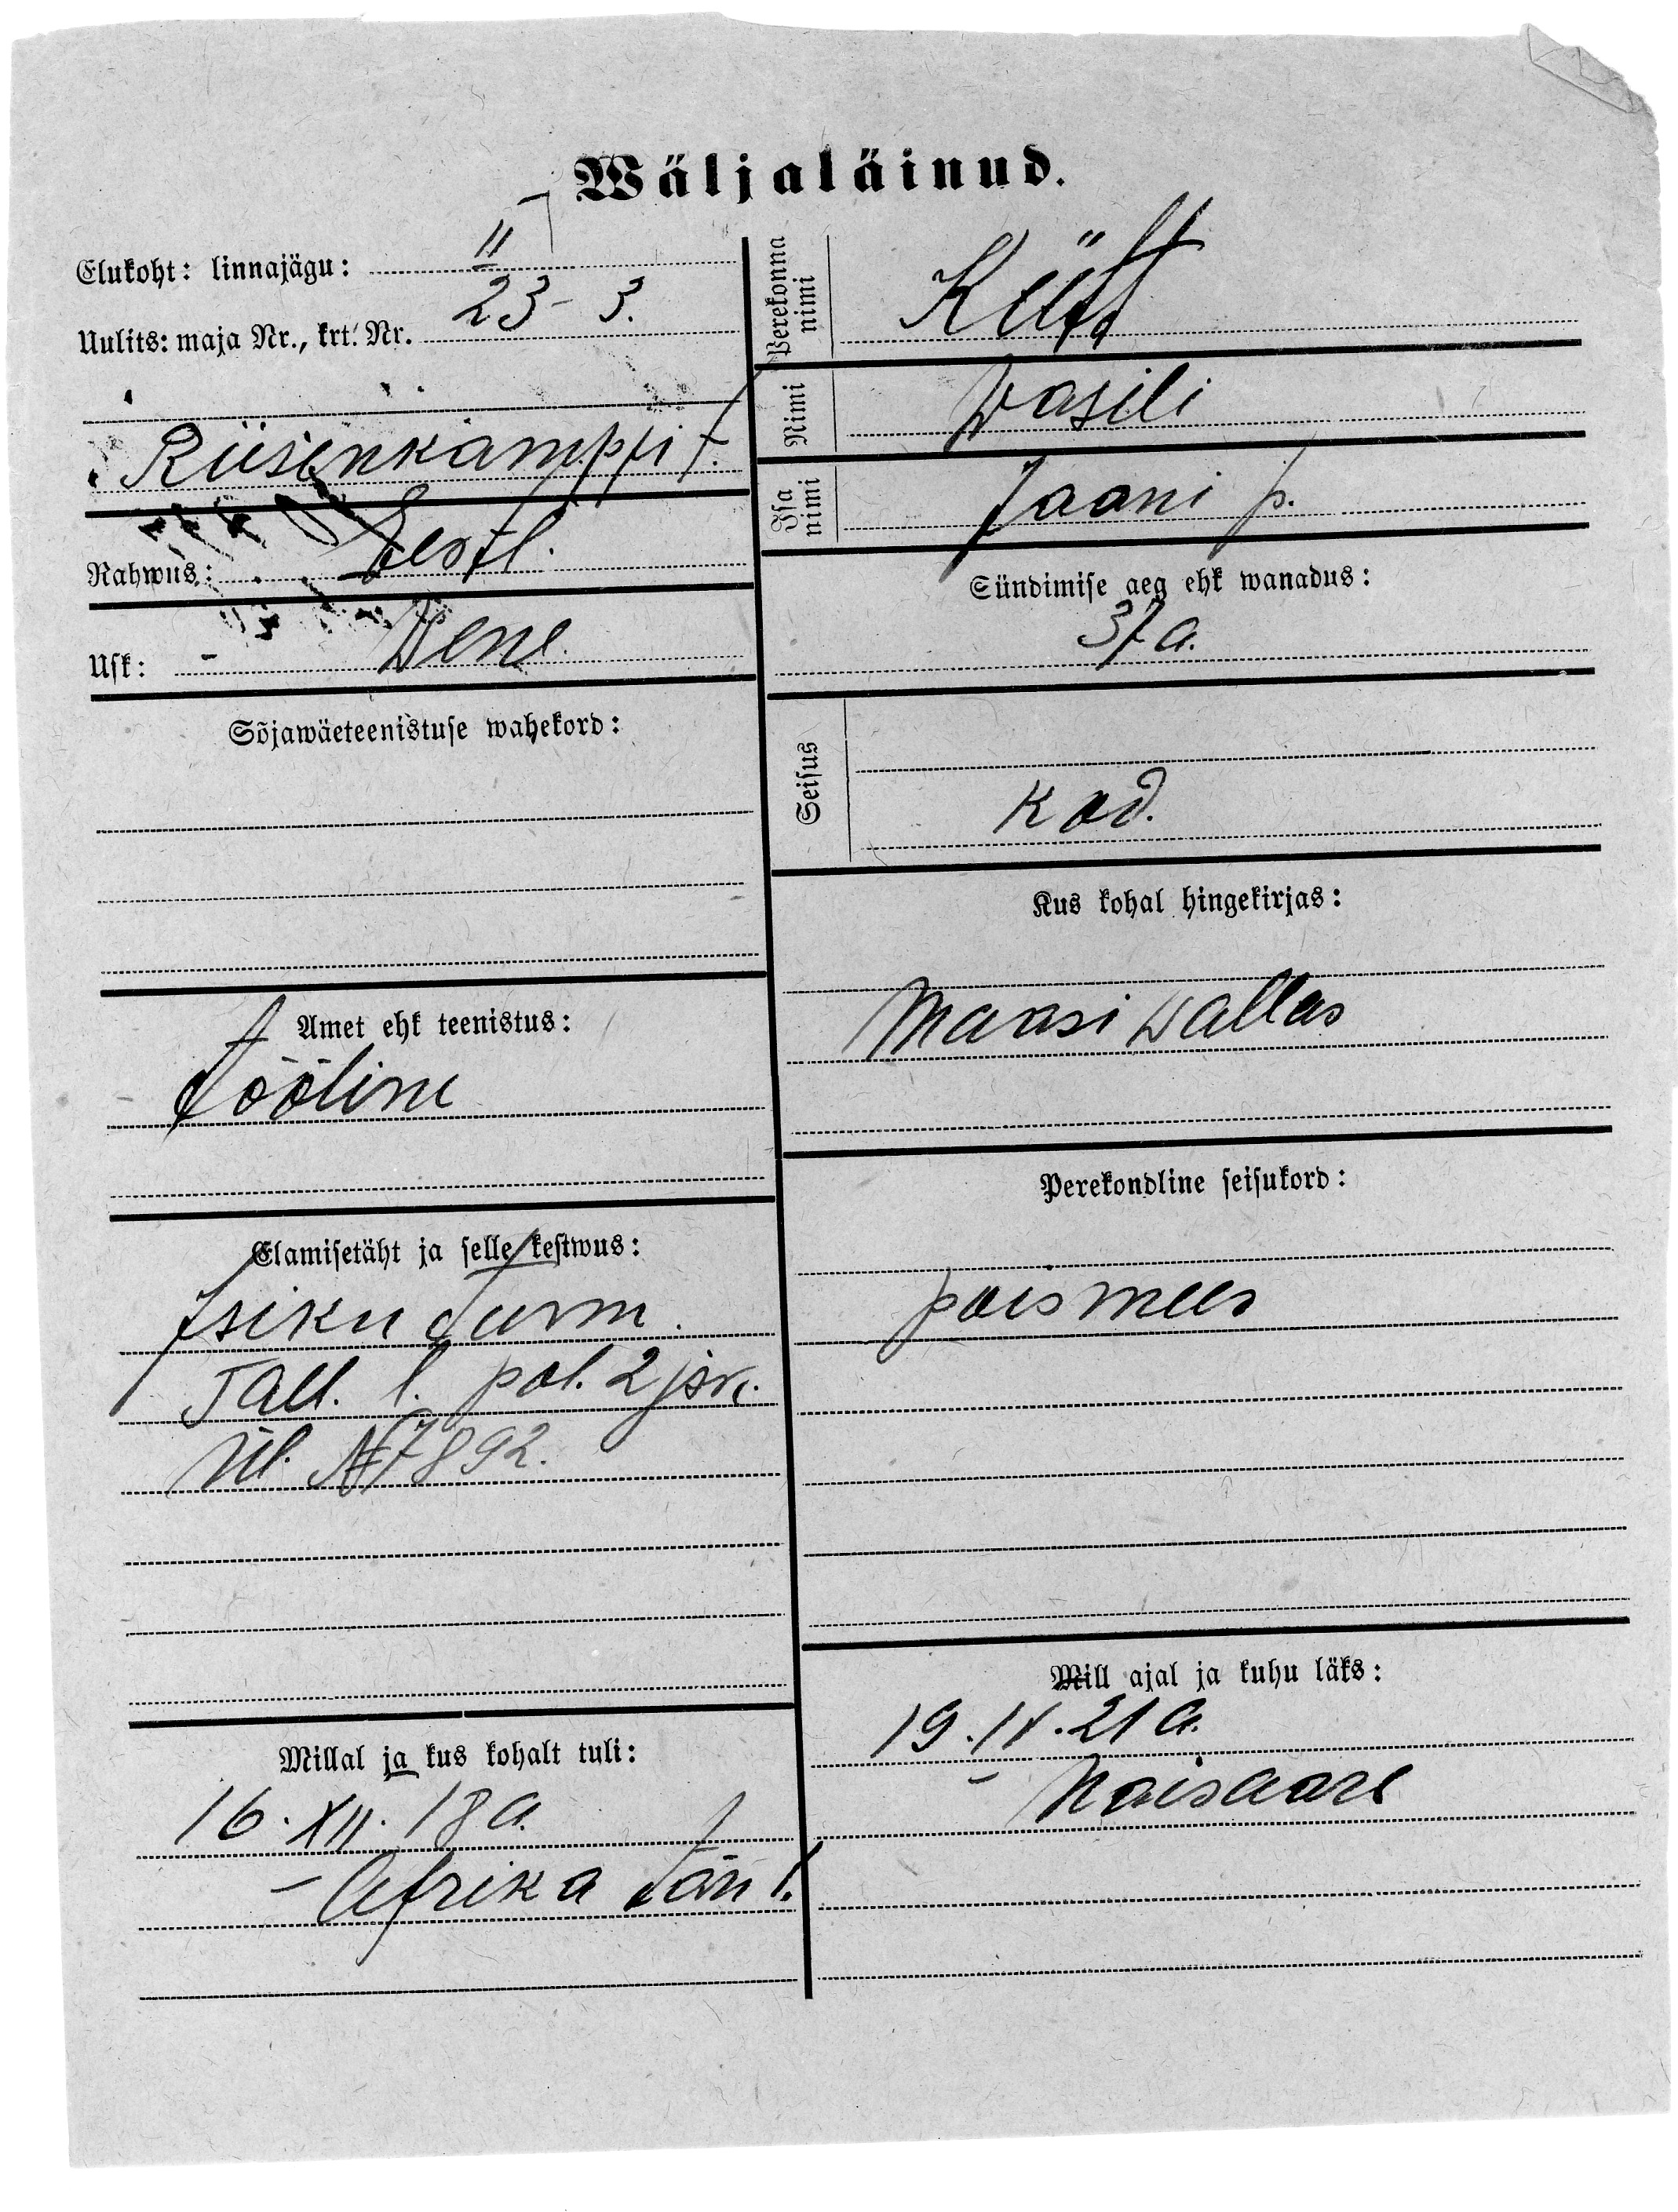 Wäljaläinud.
Elukoht: linnajägu: II
Uulits: maja Nr., krt. Nr. 23 - 3.
Riisenkampfi t.
Rahwus: Eestl.
Usk: Wene
Sõjawäeteenistuse wahekord:
Amet ehk teenistus:
tööline
Elamisetäht ja selle kestwus:
Isiku tunn.
Tall. l. pol. 2 jsk.
ül. № 7892.
Millal ja kus kohalt tuli:
16. XII. 18 a.
- Afrika tän.
Perekonna nimi
Nimi Wasili
Isa nimi Jaani p.
Sündimise aeg ehk wanadus:
37 a.
Seisus
kod.
Kus kohal hingekirjas:
Maasi wallas
Perekondline seisukord:
poismees
Mill ajal ja kuhu läks:
19. IV. 21 a.
- Naisaare